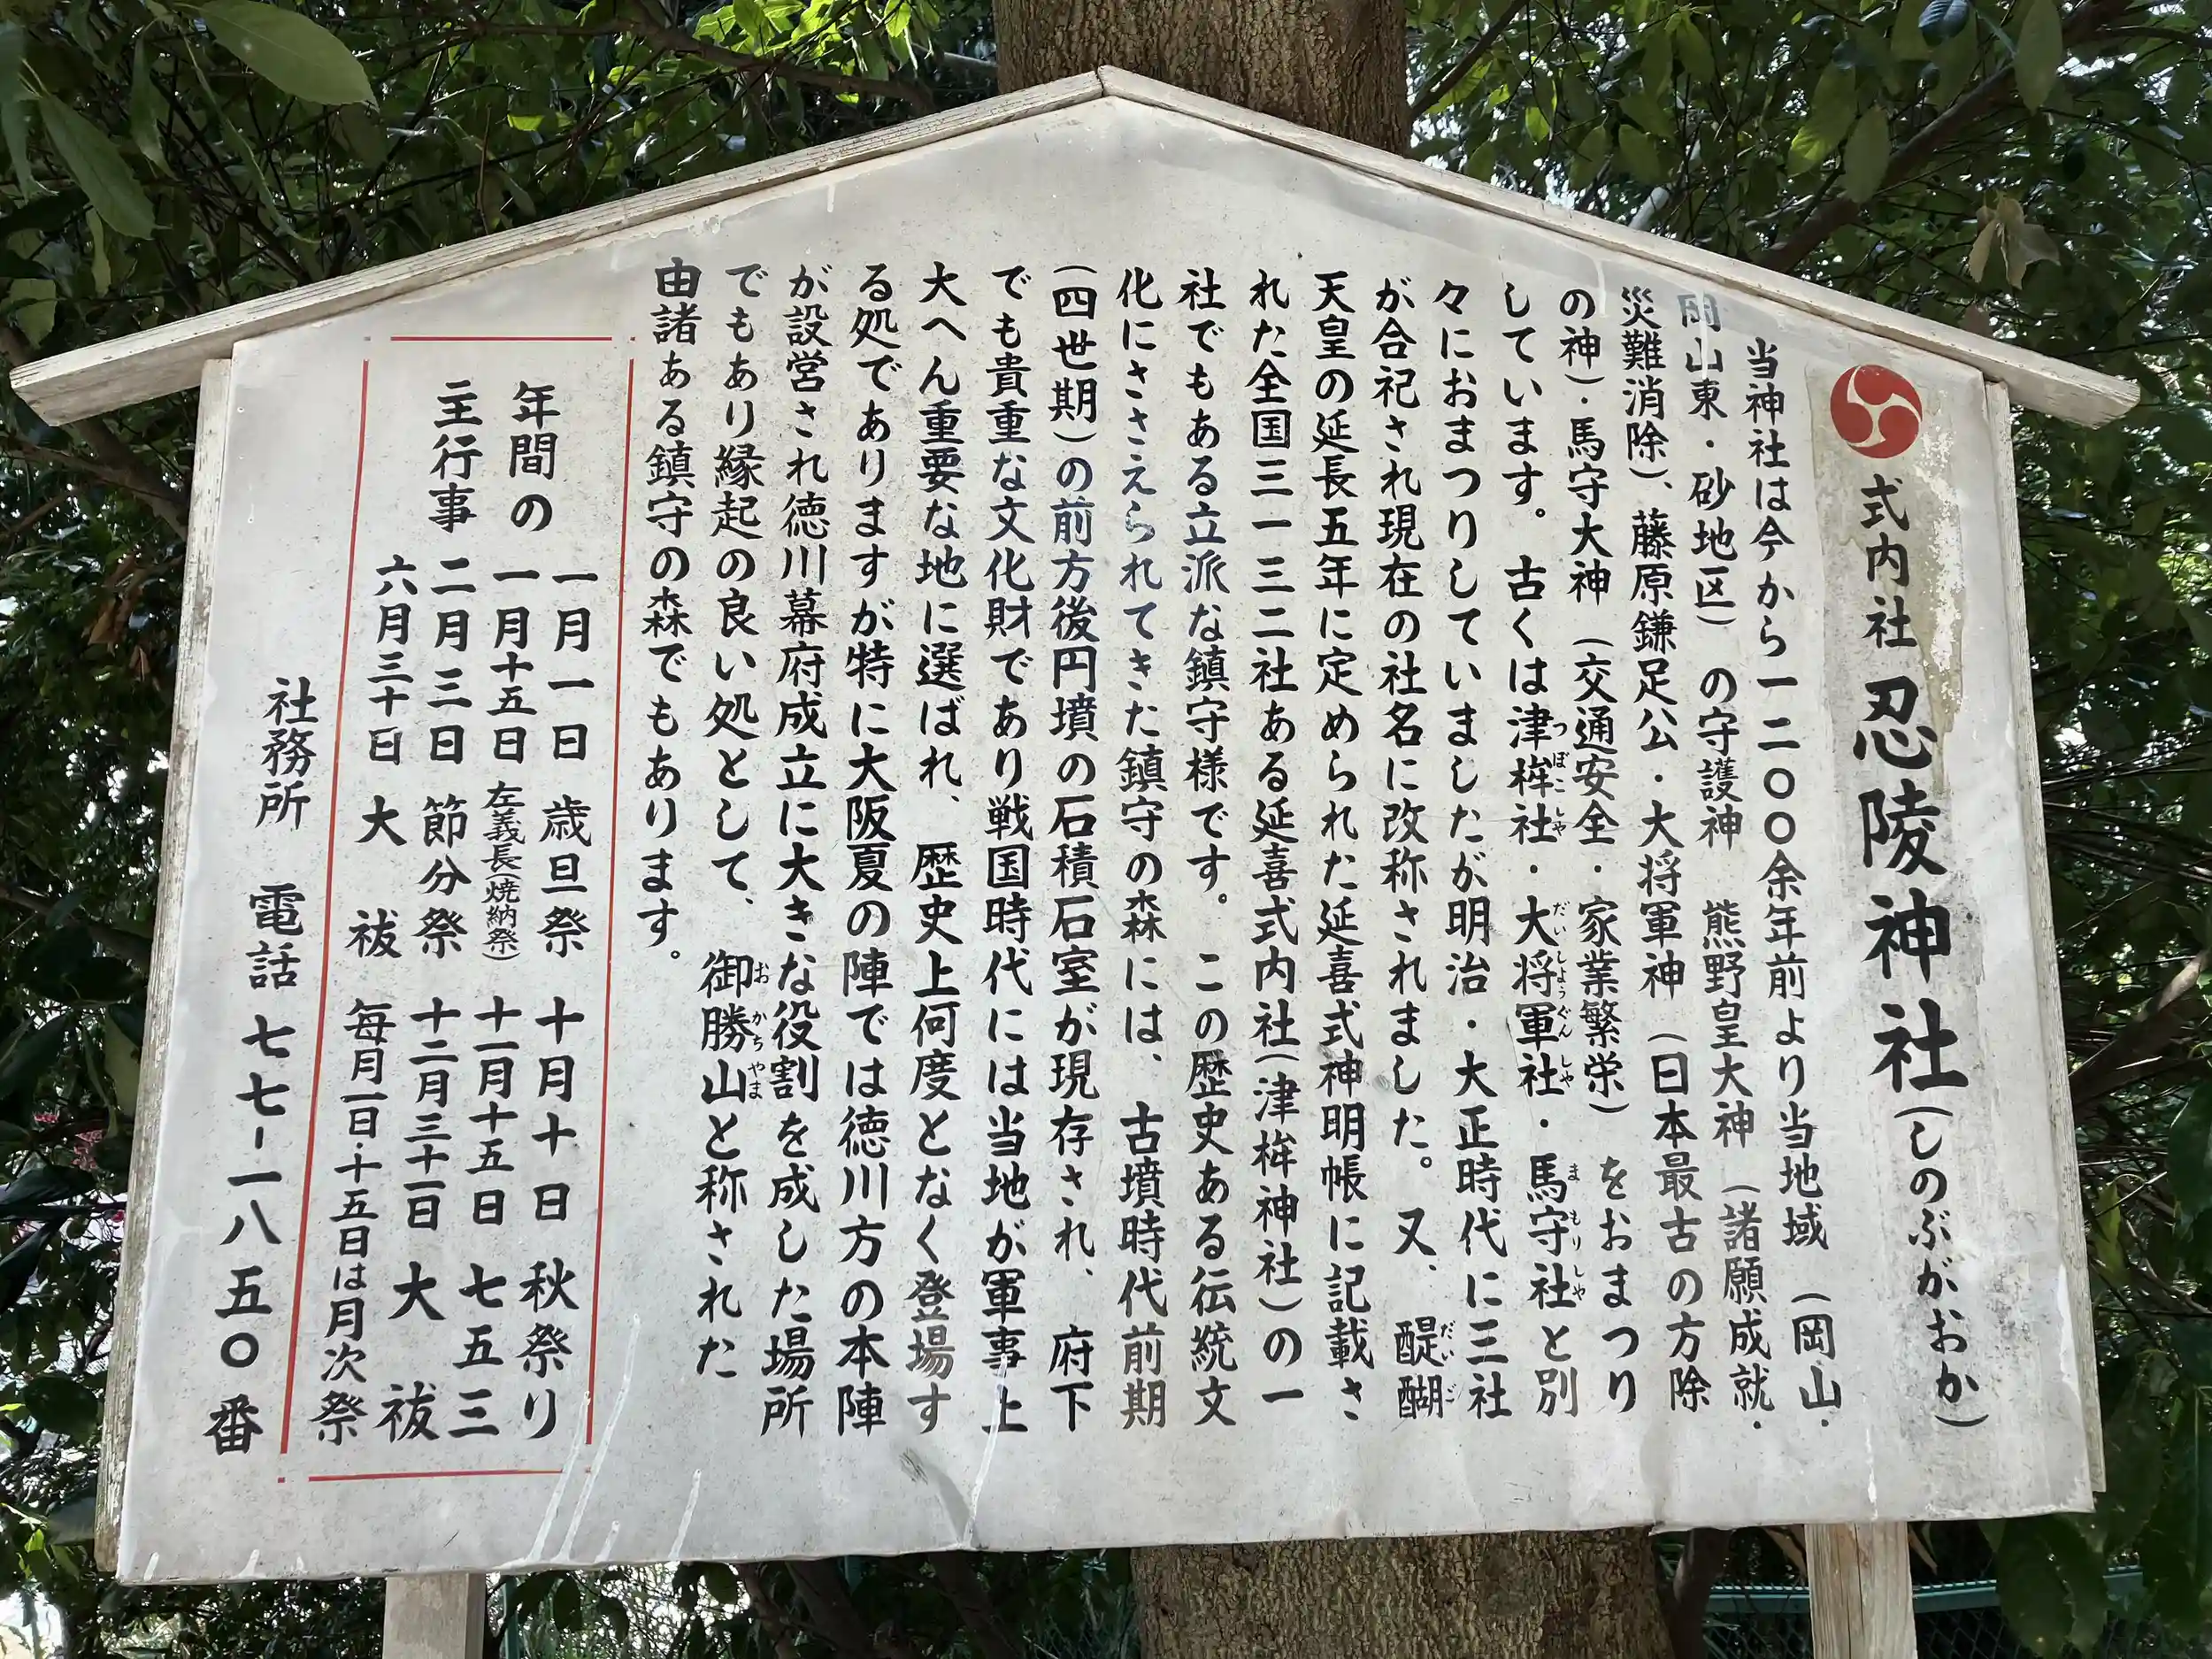 式内社 忍陵神社(しのぶがおか)
当神社は今から一二〇〇余年前より当地域(岡山・
岡山東・砂地区)の守護神 熊野皇大神(諸願成就・
災難消除)、藤原鎌足公・大将軍神(日本最古の方除
の神)・馬守大神(交通安全・家業繁栄)をおまつり
しています。古くは津桙社・大将軍社・馬守社と別
つぼこしゃ だいしょうぐんしゃ まもりしゃ
々におまつりしていましたが明治・大正時代に三社
が合祀され現在の社名に改称されました。又、醍醐
だいご
天皇の延長五年に定められた延喜式神明帳に記載さ
れた全国三一三二社ある延喜式内社(津桙神社)の一
社でもある立派な鎮守様です。この歴史ある伝統文
化にささえられてきた鎮守の森には、古墳時代前期
(四世期)の前方後円墳の石積石室が現存され、府下
でも貴重な文化財であり戦国時代には当地が軍事上
大へん重要な地に選ばれ、歴史上何度となく登場す
る処でありますが特に大阪夏の陣では徳川方の本陣
が設営され徳川幕府成立に大きな役割を成した場所
でもあり縁起の良い処として、御勝山と称された
おかちやま
由諸ある鎮守の森でもあります。
年間の
主行事
一月一日 歳旦祭 十月十日 秋祭り
一月十五日 左義長(焼納祭) 十一月十五日 七五三
二月三日 節分祭 十二月三十一日 大祓
六月三十日 大祓 毎月一日・十五日は月次祭
社務所 電話 七七-一八五〇番